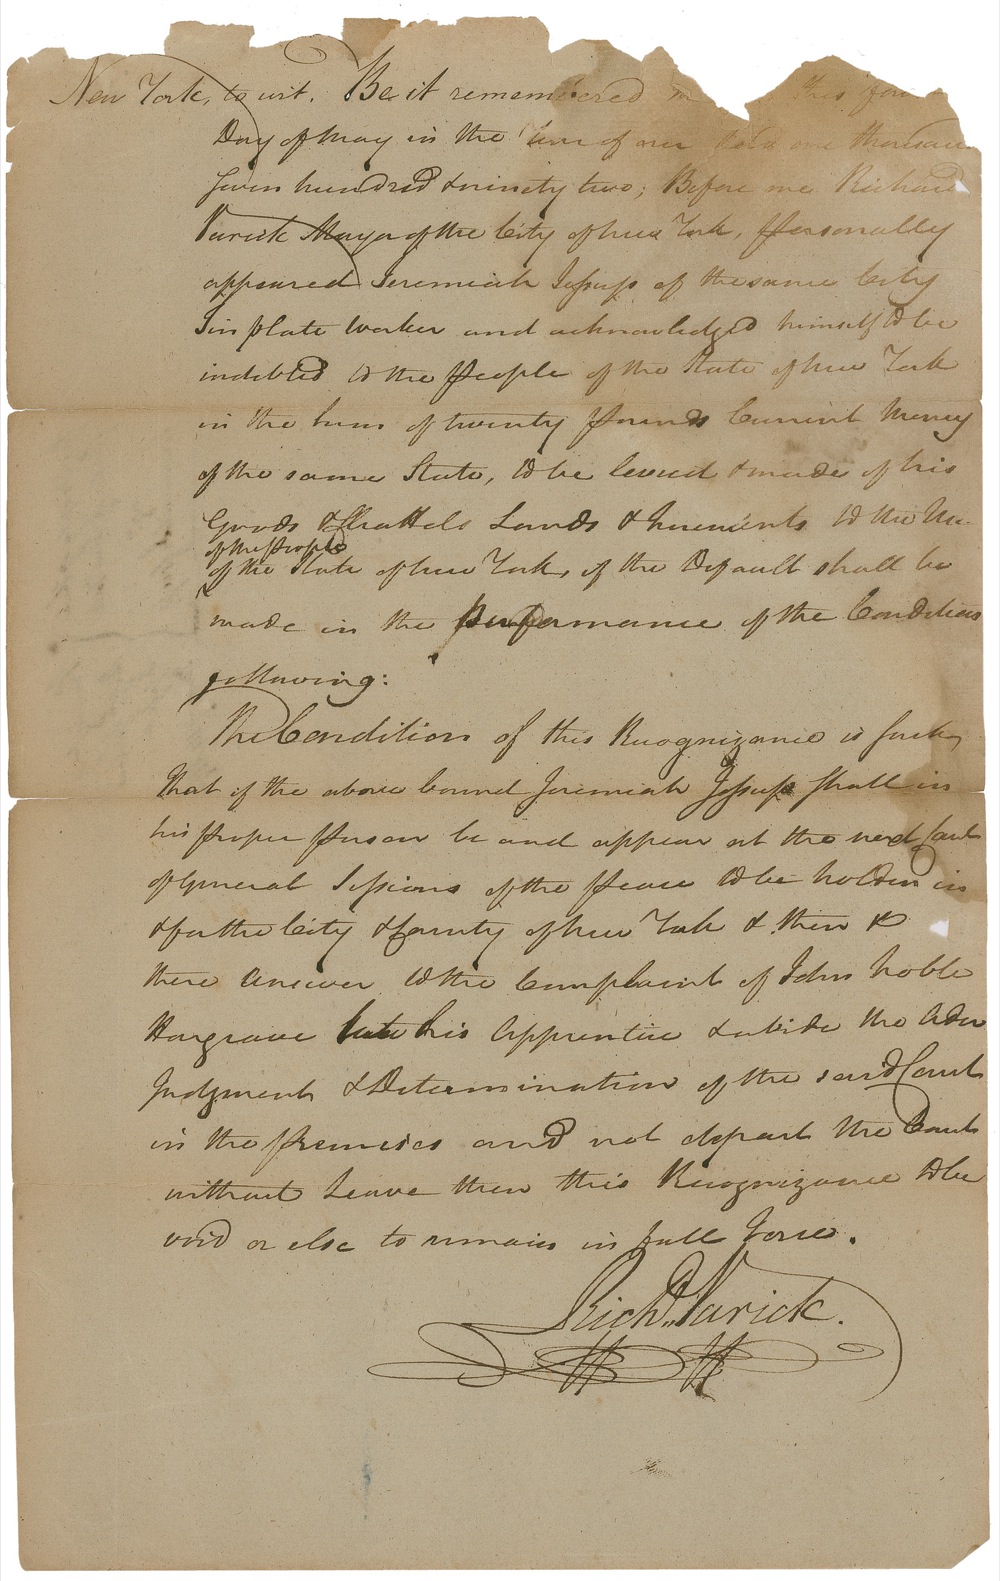 New York, to wit. Be it remembered this four
Day of May in the Year of our Lord one thousand
Seven hundred & ninety two; Before me Richard
Varick Mayor of the City of New York, personally
appeared Jeremiah Jessup of the same City
Tin plate Worker and acknowledged himself to be
indebted to the people of the State of New York
in the Sum of twenty pounds Current Money
of the same State, to be levied & made of his
Goods & Chattels Lands & Tenements to the Use
of the People
of the State of New York, if the Default shall be
made in the performance of the Condition
following:
The Condition of this Recognizance is such,
That if the above bound Jeremiah Jessup shall in
his proper person be and appear at the next Court
of General Sessions of the peace to be holden in
& for the City & County of New York & then &
there Answer to the Complaint of John Noble
Hargrave late his Apprentice & abide the Order
Judgment & Determination of the said Court
in the premises and not depart the Court
without Leave then this Recognizance to be
void or else to remain in full Force.
Richd. Varick.